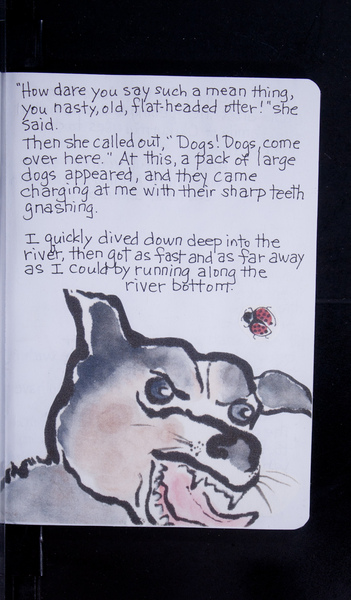 "How dare you say such a mean thing,
you nasty, old, flat-headed otter!" she
said.
Then she called out, "Dogs! Dogs, come
over here." At this, a pack of large
dogs appeared, and they came
charging at me with their sharp teeth
gnashing.
I quickly dived down deep into the
river, then got as fast and as far away
as I could by running along the
river bottom.